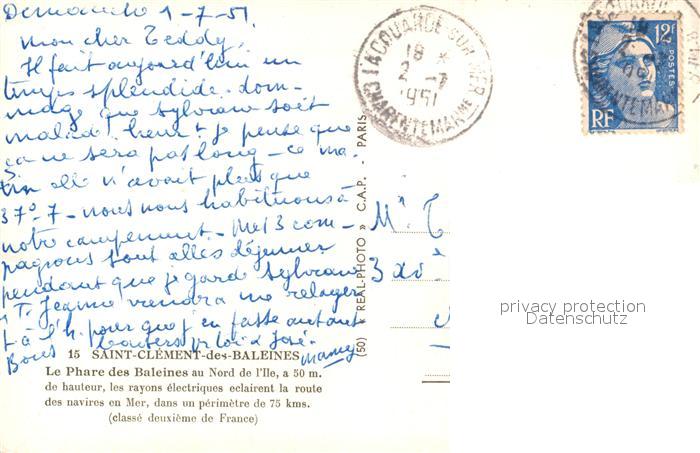 Dimanche 1-7-51.
Mon cher Teddy,
Il fait aujourd'hui un
temps splendide. dom-
mage que Sylviane soit
malade. heureust je pense que
ça ne sera pas long - ce ma-
tin elle n'avait plus que
37°-7 - nous nous habituons à
notre campement - Mes 3 com-
pagnons sont allés déjeuner
pendant que je garde Sylviane
T. Jeanne viendra me relayer
à 1 h. pour que j'en fasse autant
Bons baisers pr toi & José.
Mamy
15 SAINT-CLÉMENT-des-BALEINES
Le Phare des Baleines au Nord de l'Ile, a 50 m.
de hauteur, les rayons électriques eclairent la route
des navires en Mer, dans un périmètre de 75 kms.
(classé deuxième de France)
(50) « REAL-PHOTO » C.A.P. - PARIS
LACOUARDE SUR MER
18 *
2-7
1951
CHARENTE MARME
12F
POSTES
RF
Mr T
3 
privacy protection
Datenschutz